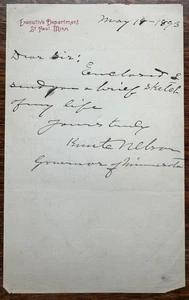 Executive Department
St Paul, Minn.
May 18- 1893
Dear Sir:
Enclosed I
send you a brief sketch
of my life
Yours truly
Knute Nelson
Governor of Minnesota